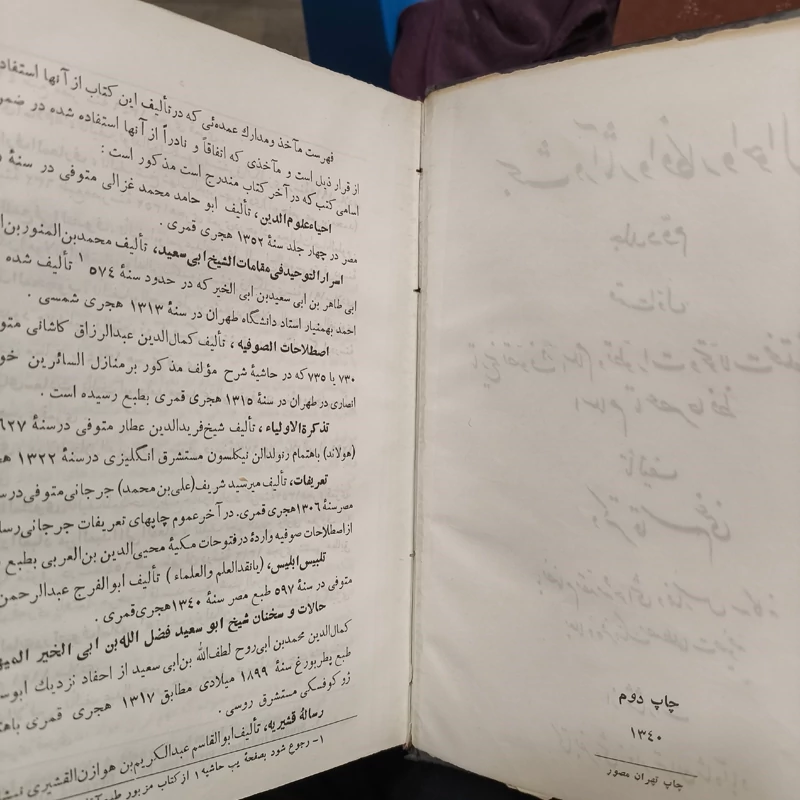 چاپ دوم
۱۳۴۰
چاپ تهران مصور
فهرست مآخذ ومدارك عمده‌ئی که درتألیف این کتاب از آنها استفاد
از قرار ذیل است و مآخذی که اتفاقاً و نادراً از آنها استفاده شده در ضمن
اسامی کتب‌که در آخر کتاب مندرج است مذکور است :
احیاء علوم‌الدین، تألیف ابو حامد محمد غزالی متوفی در سنهٔ
مصر در چهار جلد سنهٔ ۱۳۵۲ هجری قمری .
اسرارالتوحیدفی‌مقامات‌الشیخ‌ابی‌سعید، تألیف محمدبن‌المنوربن
ابی طاهر بن ابی سعیدبن ابی الخیر که در حدود سنهٔ ۵۷٤ ۱ تألیف شده
احمد بهمنیار استاد دانشگاه طهران در سنهٔ ۱۳۱۳ هجری شمسی .
اصطلاحات الصوفیه ، تألیف کمال‌الدین عبدالرزاق کاشانی متو
۷۳۰ یا ۷۳۵ که در حاشیهٔ شرح مؤلف مذکور برمنازل السائرین خو
انصاری در طهران در سنهٔ ۱۳۱۵ هجری قمری بطبع رسیده است .
تذکرة‌الاولیاء ، تألیف شیخ‌فریدالدین عطار متوفی درسنهٔ ٦۲۷
(هولاند) باهتمام رنولدالن نیکلسون مستشرق انگلیزی درسنهٔ ۱۳۲۲
تعریفات، تألیف میرسید شریف(علی‌بن‌محمد) جرجانی‌متوفی‌درس
مصرسنهٔ ۱۳۰٦هجری قمری. در آخرعموم چاپهای تعریفات جرجانی‌رسا
ازاصطلاحات صوفیه واردهٔ درفتوحات مکیهٔ محیی‌الدین بن‌العربی بطبع
تلبیس‌ابلیس، (یانقدالعلم والعلماء ) تألیف ابوالفرج عبدالرحمن
متوفی در سنهٔ ۵۹۷ طبع مصر سنهٔ ۱۳٤۰هجری‌قمری .
حالات و سخنان شیخ ابو سعید فضل الله‌بن ابی الخیر
کمال‌الدین محمدبن ابی‌روح لطف‌الله بن‌ابی سعید از احفاد نزدیك ابوس
طبع پطربورغ سنهٔ ۱۸۹۹ میلادی مطابق ۱۳۱۷ هجری قمری باهت
ژوکوفسکی مستشرق روسی .
رسالهٔ قشیریه، تألیف‌ابوالقاسم عبدالکریم‌بن هوازن‌القشیری
۱- رجوع شود بصفحهٔ یب حاشیه ۱ از کتاب مزبور